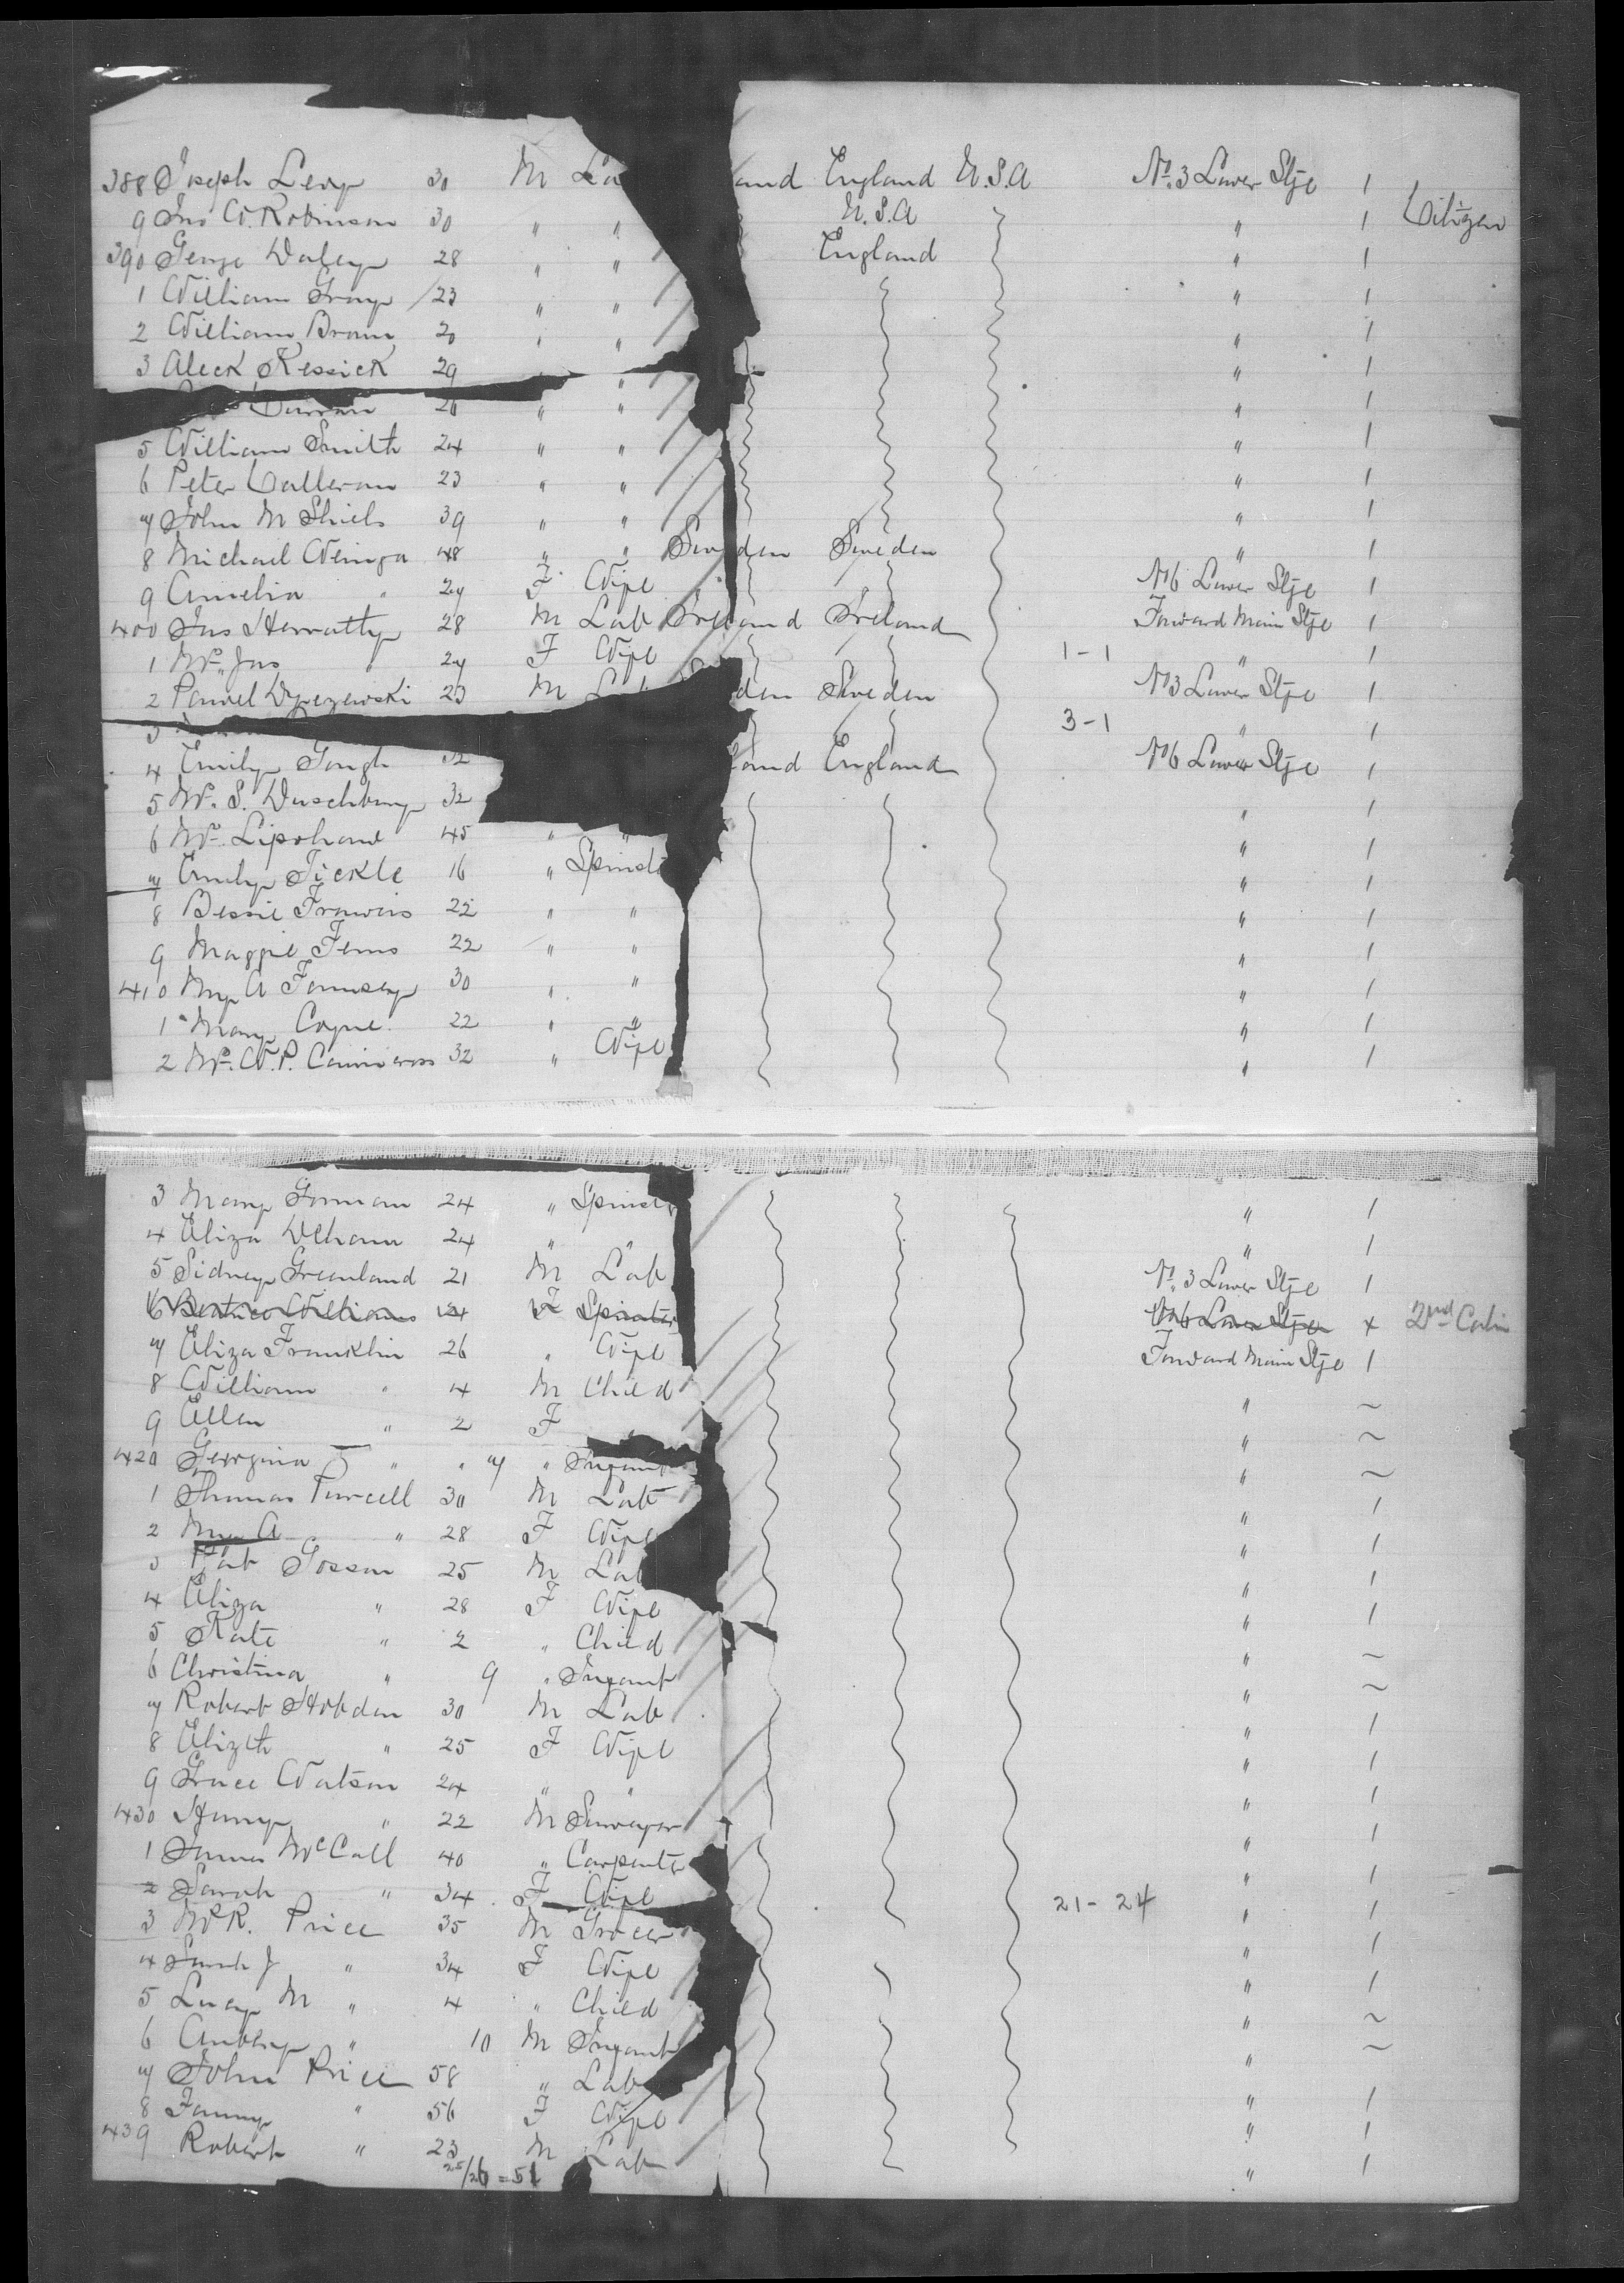 388 Joseph Levy 30 M La and England U.S.A No. 3 Lower Stge 1
9 Jno W. Robinson 30 " " U.S.A " 1 Citizen
390 George Daley 28 " " England " 1
1 William Gray 23 " " " 1
2 William Brown 20 " " " 1
3 Aleck Kessick 29 " " " 1
20 " " " 1
5 William Smith 24 " " " 1
6 Peter Calleran 23 " " " 1
7 John M Shiels 39 " " " 1
8 Michael 48 " " Sweden Sweden " 1
9 Amelia " 27 F Wife No 6 Lower Stge 1
400 Jas Herratty 28 M Lab Ireland Ireland Forward Main Stge 1
1 Mrs Jas " 27 F Wife 1-1 " 1
2 Pawel 23 M Lab den Sweden No 3 Lower Stge 1
3 3-1 " 1
4 Emily Gough 32 land England No 6 Lower Stge 1
5 Mrs. S. 32 " 1
6 Mrs. 45 " " " 1
7 Emily Tickle 16 " Spinst " 1
8 Bessie 22 " " " 1
9 Maggie 22 " " " 1
410 A 30 " " " 1
1 Mary Coyne 22 " " " 1
2 Mrs. W. P. 32 " Wife " 1
3 Mary Gorman 24 " Spinst " 1
4 Eliza 24 " " " 1
5 Sidney Greenland 21 M Lab No. 3 Lower Stge 1
6 Beatrice Williams 24 F Spinster No 6 Lower Stge x 2nd Cabin
7 Eliza Franklin 26 " Wife Forward Main Stge 1
8 William " 4 M Child " ~
9 Ellen " 2 F " ~
420 Georgina " " 7 " Infant " ~
1 Thomas Purcell 30 M Lab " 1
2 A " 28 F Wife " 1
3 25 M Lab " 1
4 Eliza " 28 F Wife " 1
5 Kate " 2 " Child " ~
6 Christina " 9 " Infant " ~
7 Robert Hobden 30 M Lab " 1
8 Elizth " 25 F Wife " 1
9 Grace Watson 24 " " " 1
430 Henry " 22 M Surveyor " 1
1 James McCall 40 " Carpenter " 1
2 Sarah " 34 F Wife 21-24 " 1
3 R. Price 35 M Grocer " 1
4 Sarah J " 34 F Wife " 1
5 Lucy M " 4 " Child " ~
6 Aubrey " 10 M Infant " ~
7 John Price 58 " Lab " 1
8 Fanny " 56 F Wife " 1
439 Robert " 23 M Lab " 1
25/26 = 51